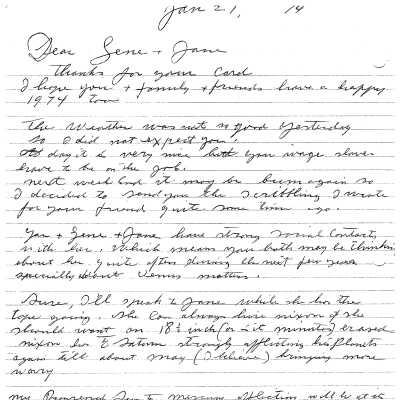 Jan 21, 14
Dear Gene + Jane
Thanks for your Card
I hope you + family + friends have a happy
1974 too
The Weather was not so good yesterday
so I did not expect you.
To day it is very nice but you wage slaves
have to be on the job.
next week End it may be bum again so
I decided to send you the scribbling I wrote
for your friend quite some time ago.
You + Gene + Jane have strong social Contacts
with her. Which means you both may be thinking
about her quite often during the next few years
especially about Venus matters.
Sure, I'll speak to Jane while she has the
tape going. She Can always hire nixon if she
should want an 18½ inch (or is it minutes) erased
nixon has Saturn strongly afflicting his planets
again till about May (I believe) bringing more
worry
his Saturn to mercury affliction will be at its